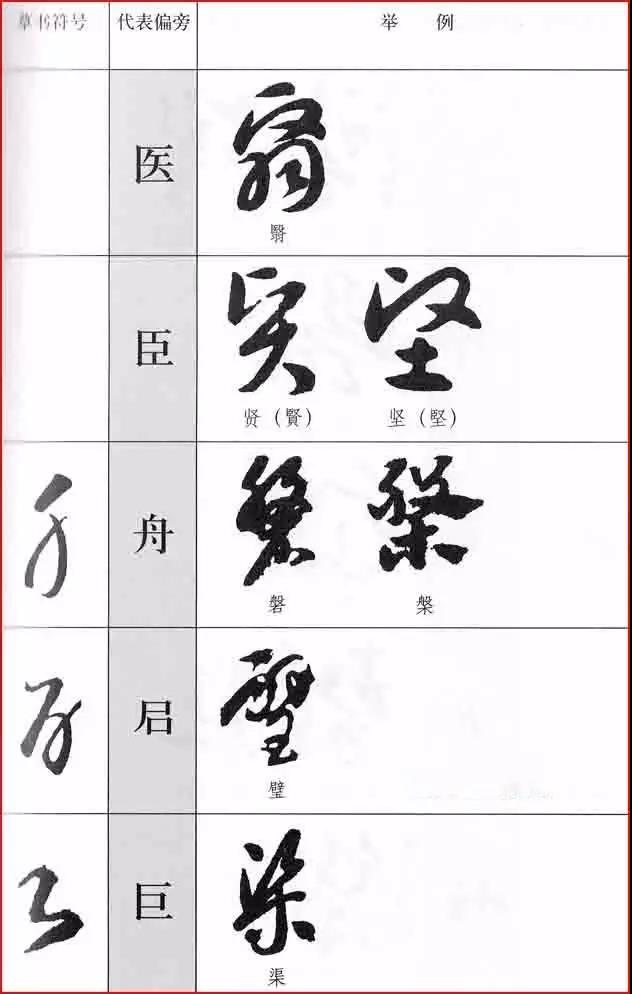 草书符号 代表偏旁 举例
医
翳
臣
贤（賢） 坚（堅）
舟
磐 槃
㠯
璧
巨
渠